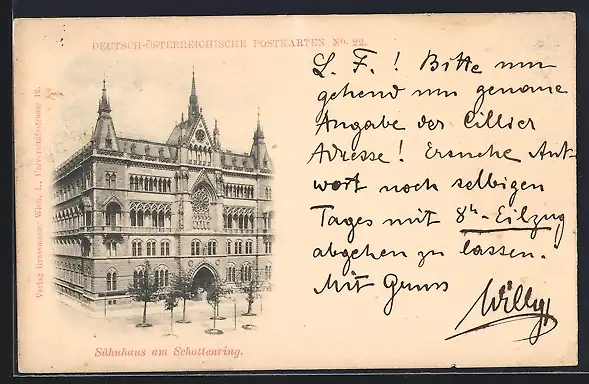 DEUTSCH-ÖSTERREICHISCHE POSTKARTEN No. 22.
L. F.! Bitte um
gehend um genaue
Angabe der Cillier
Adresse! Ersuche Ant-
wort noch selbigen
Tages mit 8h-Eilzug
abgehen zu lassen.
Mit Gruss
Willy
Verlag Grassmann: Wien, I., Universitätsstrasse 12.
Sühnhaus am Schottenring.